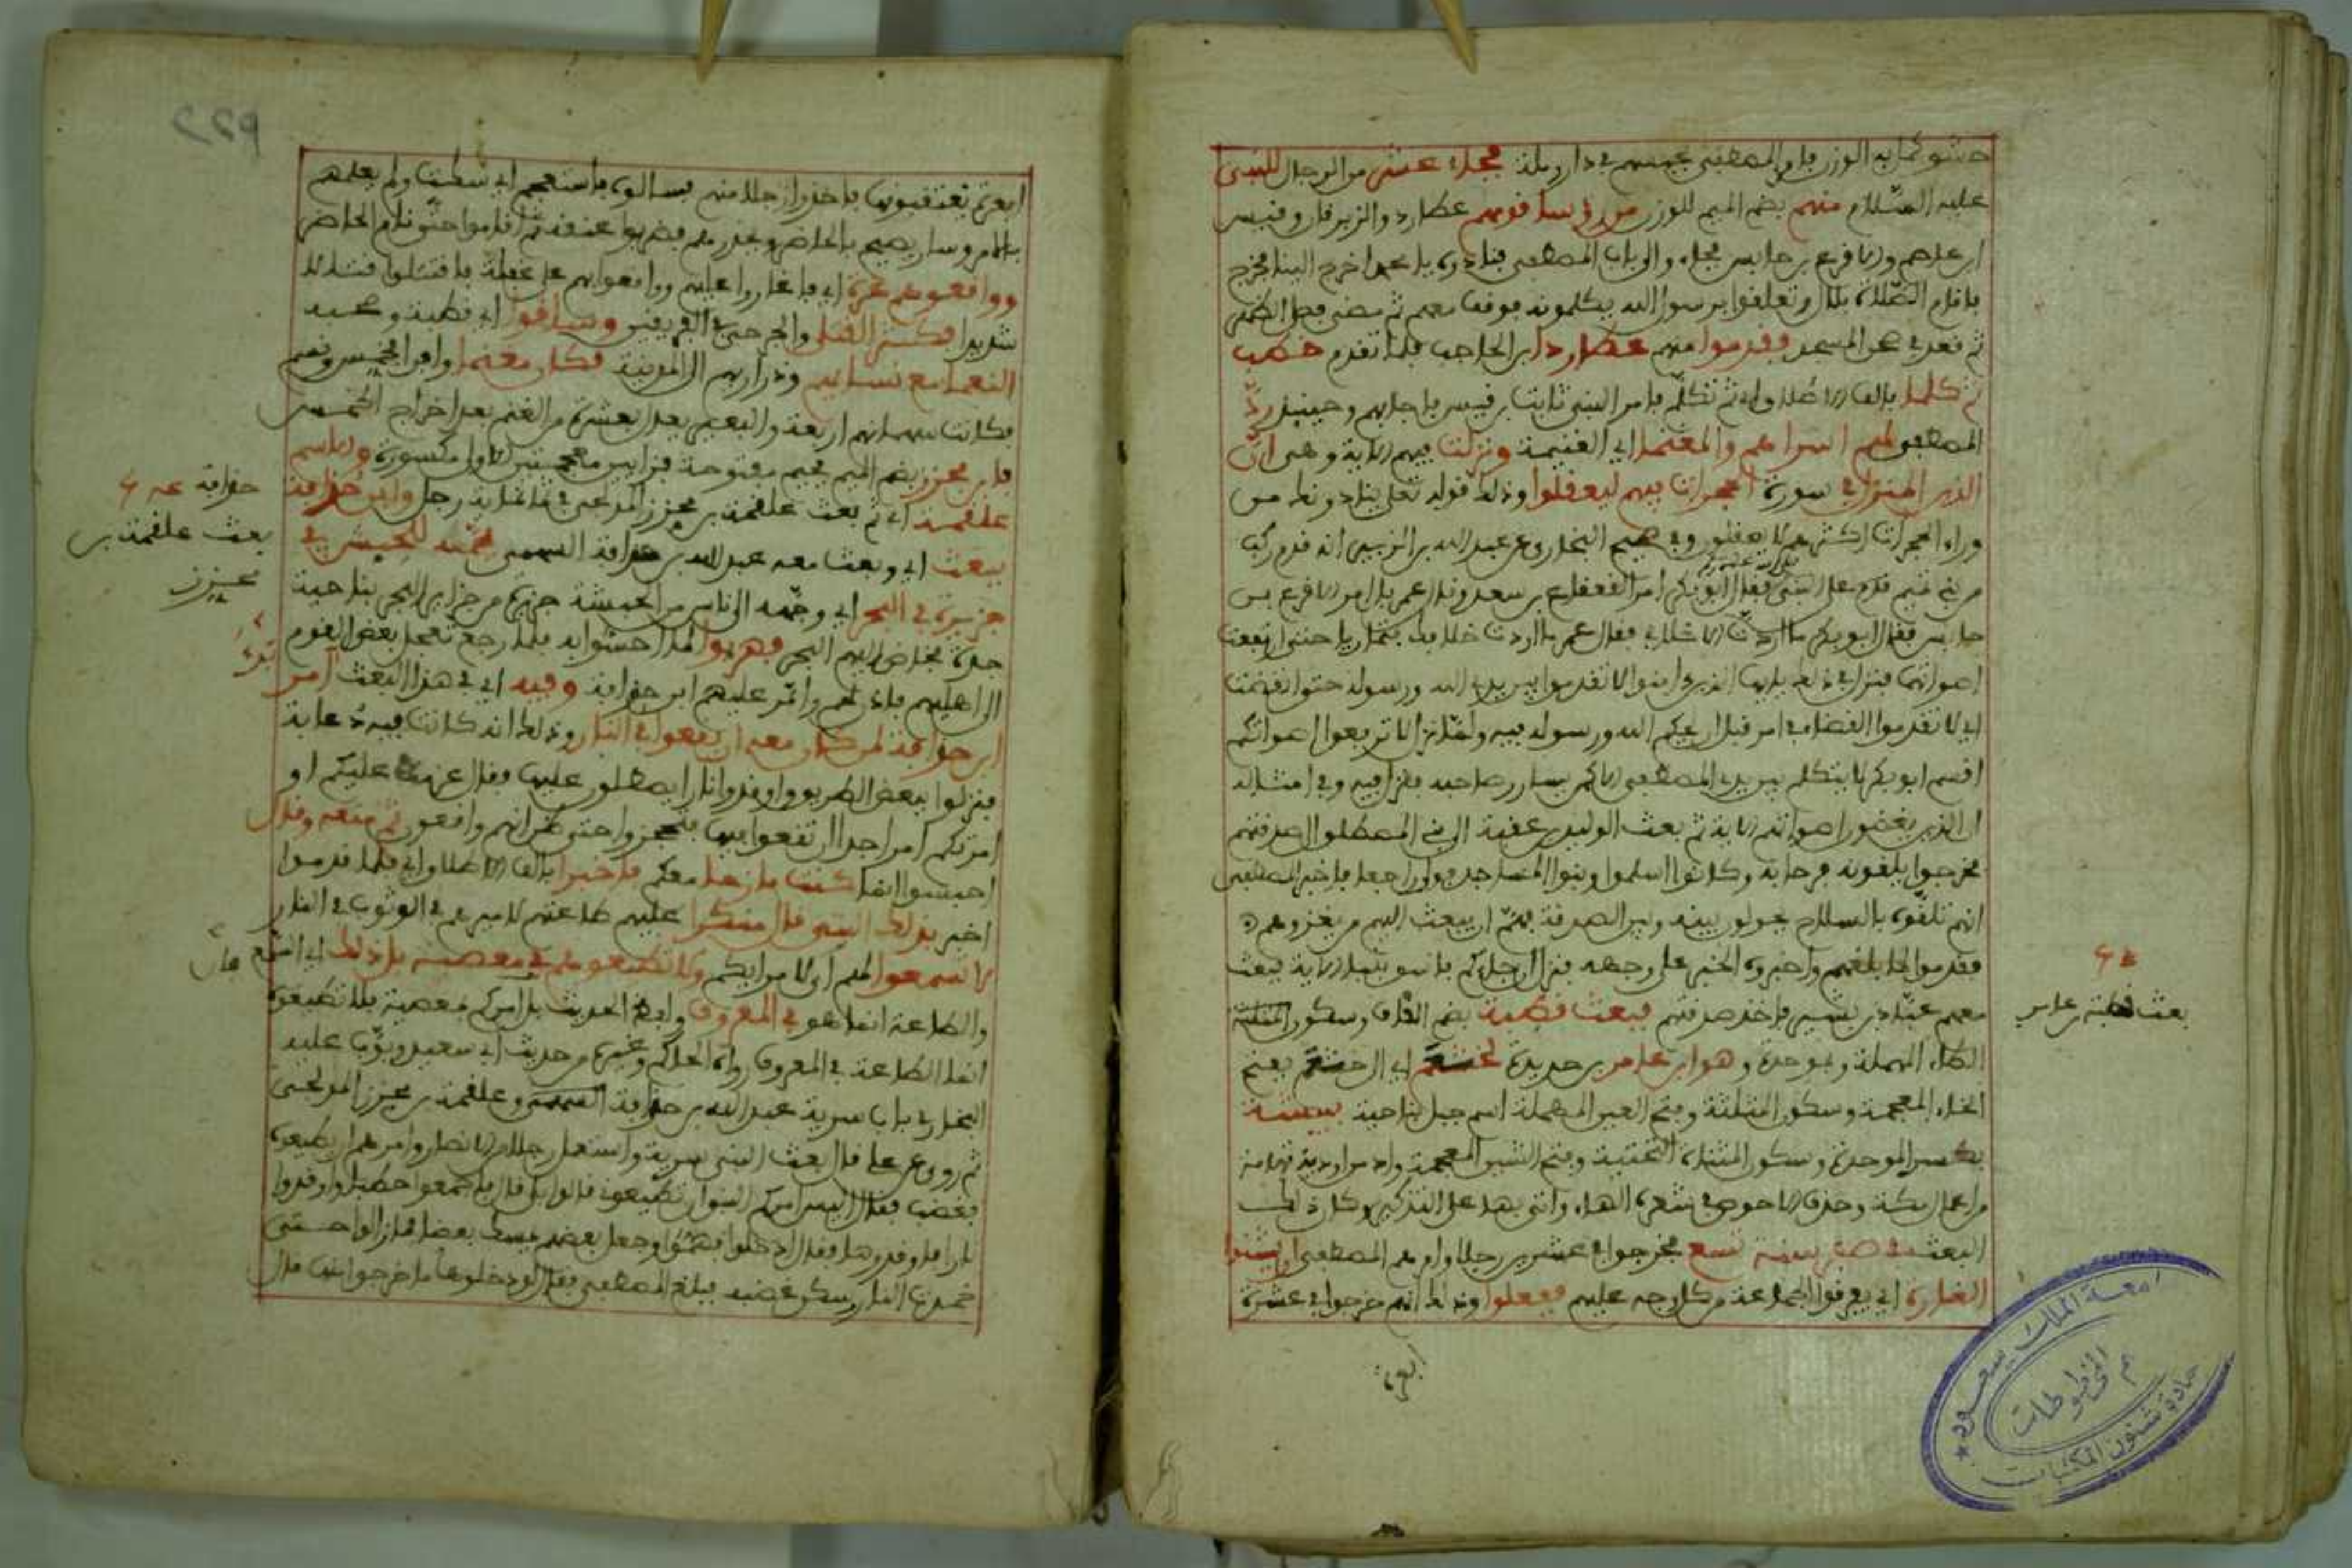 حشو كمل به الوزن فامر المصطفى بحبسهم في دار رملة فجاء عشر من الرجال للنبي
عليه السلام منهم بضم الميم للوزن من رؤسا قومهم عطارد والزبرقان وقيس
ابن عاصم والاقرع بن حابس فجاء والباب المصطفى فنادوه يا محمد اخرج الينا فخرج
فاقام الصلاة بلال وتعلقوا برسول الله يكلمونه فوقف معهم ثم مضى فصلى الظهر
ثم قعد في صحن المسجد فقدموا منهم عطاردا ابن الحاجب فلما تقدم خطب
ثم كلما بالف الاطلاق اي ثم تكلم فامر النبي ثابت بن قيس فاجابهم وحينئذ ردّ
المصطفى لهم اسراهم والمغنما اي الغنيمة ونزلت فيهم الاية وهي ان
الذين المنزل في سورة الحجرات فيهم ليعقلوا وذلك قوله تعالى ينادونك من
وراء الحجرات اكثرهم لا يعقلون وفي صحيح البخاري عن عبد الله بن الزبير انه قدم ركب
من بني تميم قدم على النبي فقال ابو بكر امر القعقاع بن سعد وقال عمر بل امر الاقرع بن
حابس فقال ابو بكر ما اردت الا خلافي فقال عمر ما اردت خلافك فتماريا حتى ارتفعت
اصواتهما فنزل في ذلك يايها الذين امنوا لا تقدموا بين يدي الله ورسوله حتى انقضت
اي لا تقدموا القضاء في امر قبل ان يحكم الله ورسوله فيه ولما نزل لا ترفعوا اصواتكم
اقسم ابو بكر لا يتكلم بين يدي المصطفى الا كمن يسارر صاحبه فنزل فيه وفي امثاله
ان الذين يغضون اصواتهم الاية ثم بعث الوليد بن عقبة الى بني المصطلق لصدقتهم
فخرجوا يلقونه فرحا به وكانوا اسلموا وبنوا المساجد فولى راجعا فاخبر المصطفى
انهم تلقوه بالسلاح يحولون بينه وبين الصدقة فهمّ ان يبعث اليهم من يغزوهم
فقدموا لما بلغهم واخبروه الخبر على وجهه فنزل ان جاءكم فاسق بنبا الاية فبعث
معهم عباد بن بشير فاخذ صدقتهم فبعث قطبة بضم القاف وسكون
الطاء المهملة وبموحدة وهو ابن عامر بن حديدة لخثعم اي الى خثعم بفتح
الخاء المعجمة وسكون المثلثة وفتح العين المهملة اسم جبل بناحية بيشة
بكسر الموحدة وسكون المثناة التحتية وفتح الشين المعجمة واد من اودية تهامة
من اعمال مكة وحذف الاحوص في شعره الهاء واتى بها على التذكير وكان ذلك
البعث في صفر سنة تسع فخرجوا في عشرين رجلا وامرهم المصطفى ان يشنوا
الغارة اي يفرقوا الجماعة من كل وجه عليهم ففعلوا وذلك انهم خرجوا في عشرة
ابعرة
ع
بعث قطبة بن عامر
ابعرة يعتقبونها فاخذوا رجلا منهم فسالوه فاستعجم اي سكت ولم يعلمهم
بالامر وصار يصيح بالحاضر ويحذرهم فضربوا عنقه ثم اقاموا حتى نام الحاضر
وواقعوهم غرة اي فاغاروا عليهم وواقعوهم على غفلة فاقتتلوا قتالا
شديدا فكثر القتلى والجرحى في الفريقين وساقوا اي قطبة وصحبه
النعما مع نسائهم وذراريهم الى المدينة فكان مغنما وافرا فخمس وقسم
فكانت سهمانهم اربعة والبعير يعدل بعشرة من الغنم بعد اخراج الخمس
فابن مجزز بضم الميم فجيم مفتوحة فزايين معجمتين الاولى مكسورة واسم
علقمة اي ثم بعث علقمة بن مجزز المدلجي في ثلاثماية رجل وابن حذافة
يبعث اي وبعث معه عبد الله بن حذافة السهمي فجهة للحبش في
جزيرة في البحر اي وجّهه الى ناس من الحبشة جزيرة من جزاير البحر بناحية
جدة فخاض اليهم البحر فهربوا لما احسوا به فلما رجع تعجل بعض القوم
الى اهليهم فاذن لهم وامّر عليهم ابن حذافة وفيه اي في هذا البعث امر
ابن حذافة لمن كان معه ان يقعوا في النار وذلك انه كانت فيه دعابة
فنزلوا ببعض الطريق واوقدوا نارا يصطلون عليها وقال عزمت عليكم او
امرتكم امرا جدا ان تقعوا فيها فتحجزوا حتى ظن انهم واقعون ثم منعه وقال
احبسوا انما كنت مازحا معكم فاخبرا بالف الاطلاق اي فلما قدموا
اخبر بذلك النبي قال منكرا عليهم طاعتهم لاميرهم في الوثوب في النار
لا تسمعوا لهم اي لامرايكم ولا تطيعوهم في معصية بل ذلك اي السمع
والطاعة انما هو في المعروف ولفظ الحديث من امركم بمعصية فلا تطيعوه
انما الطاعة في المعروف رواه الحاكم وغيره من حديث ابي سعيد وبوّب عليه
البخاري باب سرية عبد الله بن حذافة السهمي وعلقمة بن مجزز المدلجي
ثم روى عن علي قال بعث النبي سرية واستعمل رجلا من الانصار وامرهم ان يطيعوه
فغضب فقال اليس امركم النبي ان تطيعوني قالوا بلى قال فاجمعوا حطبا واوقدوا
نارا فاوقدوها فقال ادخلوا فهمّوا وجعل بعضهم يمسك بعضا فما زالوا حتى
خمدت النار وسكن غضبه فبلغ المصطفى فقال لو دخلوها ما خرجوا منها قال
حذافة
بعث علقمة بن
مجزز
قال
229
جامعة الملك سعود
قسم المخطوطات
عمادة شئون المكتبات